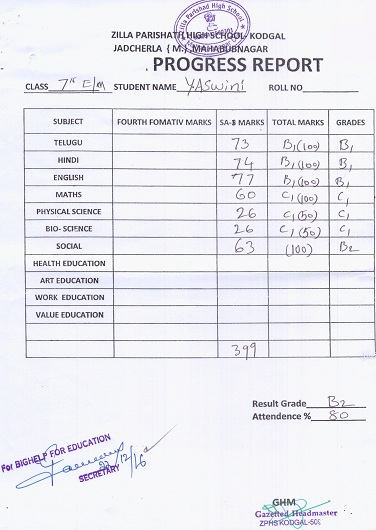 Zilla Parishad High School
ZILLA PARISHATH HIGH SCHOOL- KODGAL
JADCHERLA ( M ) ,MAHABUBNAGAR
. PROGRESS REPORT
CLASS 7th E/M STUDENT NAME YASwini ROLL NO
SUBJECT FOURTH FOMATIV MARKS SA-II MARKS TOTAL MARKS GRADES
TELUGU 73 B1(100) B1
HINDI 74 B1(100) B1
ENGLISH 77 B1(100) B1
MATHS 60 C1(100) C1
PHYSICAL SCIENCE 26 C1(50) C1
BIO- SCIENCE 26 C1(50) C1
SOCIAL 63 (100) B2
HEALTH EDUCATION
ART EDUCATION
WORK EDUCATION
VALUE EDUCATION
399
Result Grade B2
Attendence % 80
For BIGHELP FOR EDUCATION
/12/16
SECRETARY
GHM
Gazetted Headmaster
ZPHS KODGAL-509